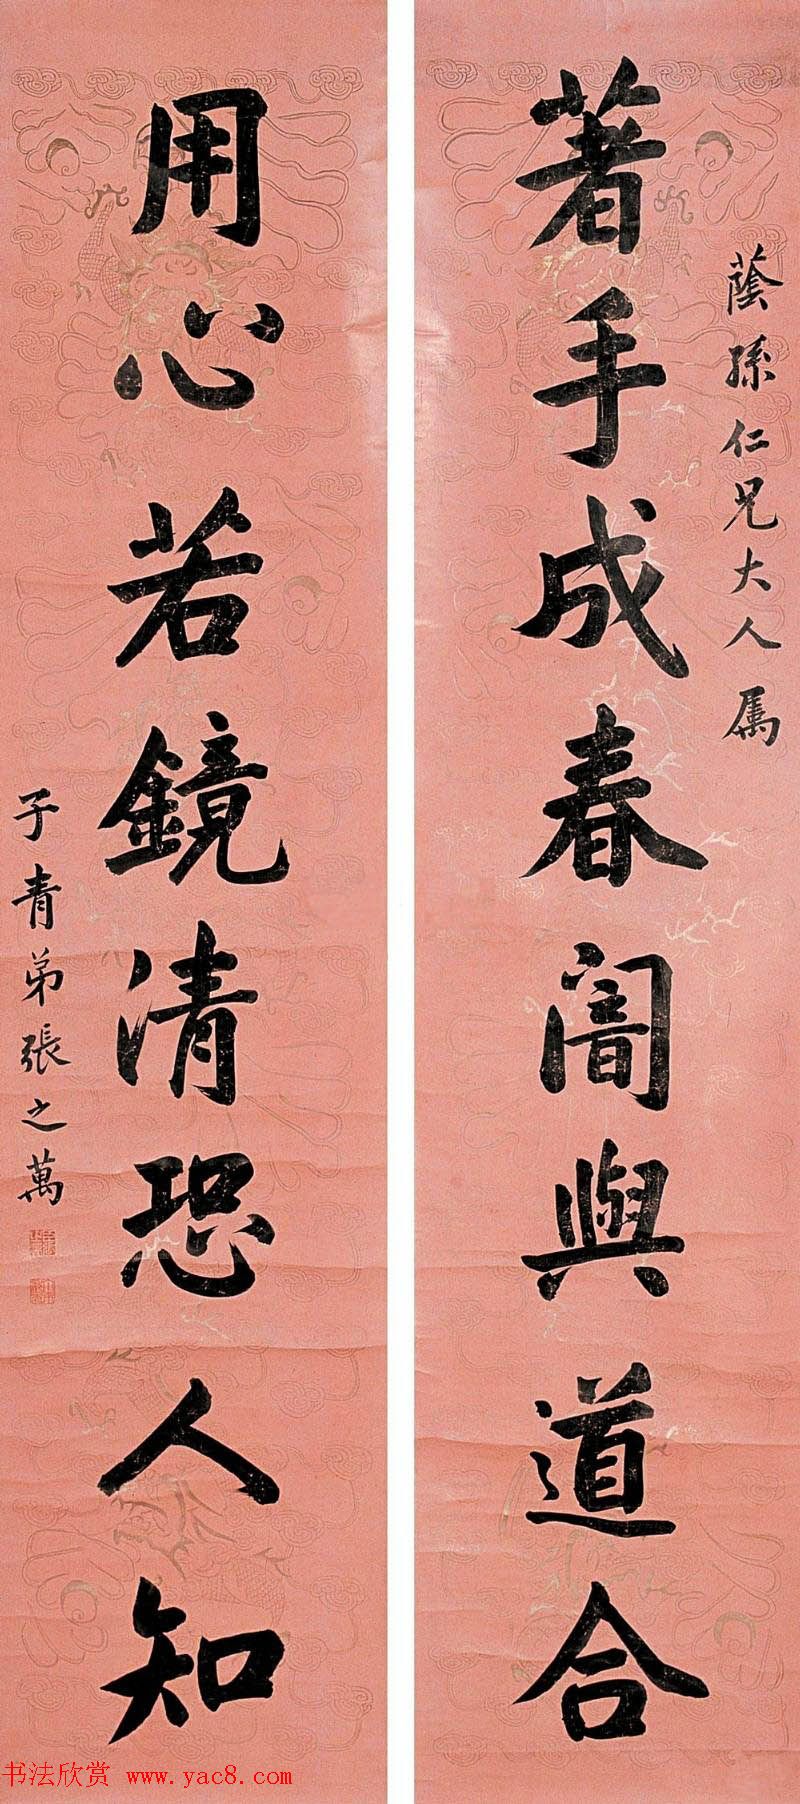 蔭孫仁兄大人属
著手成春闇與道合
用心若鏡清恐人知
子青弟張之萬
书法欣赏 www.yac8.com